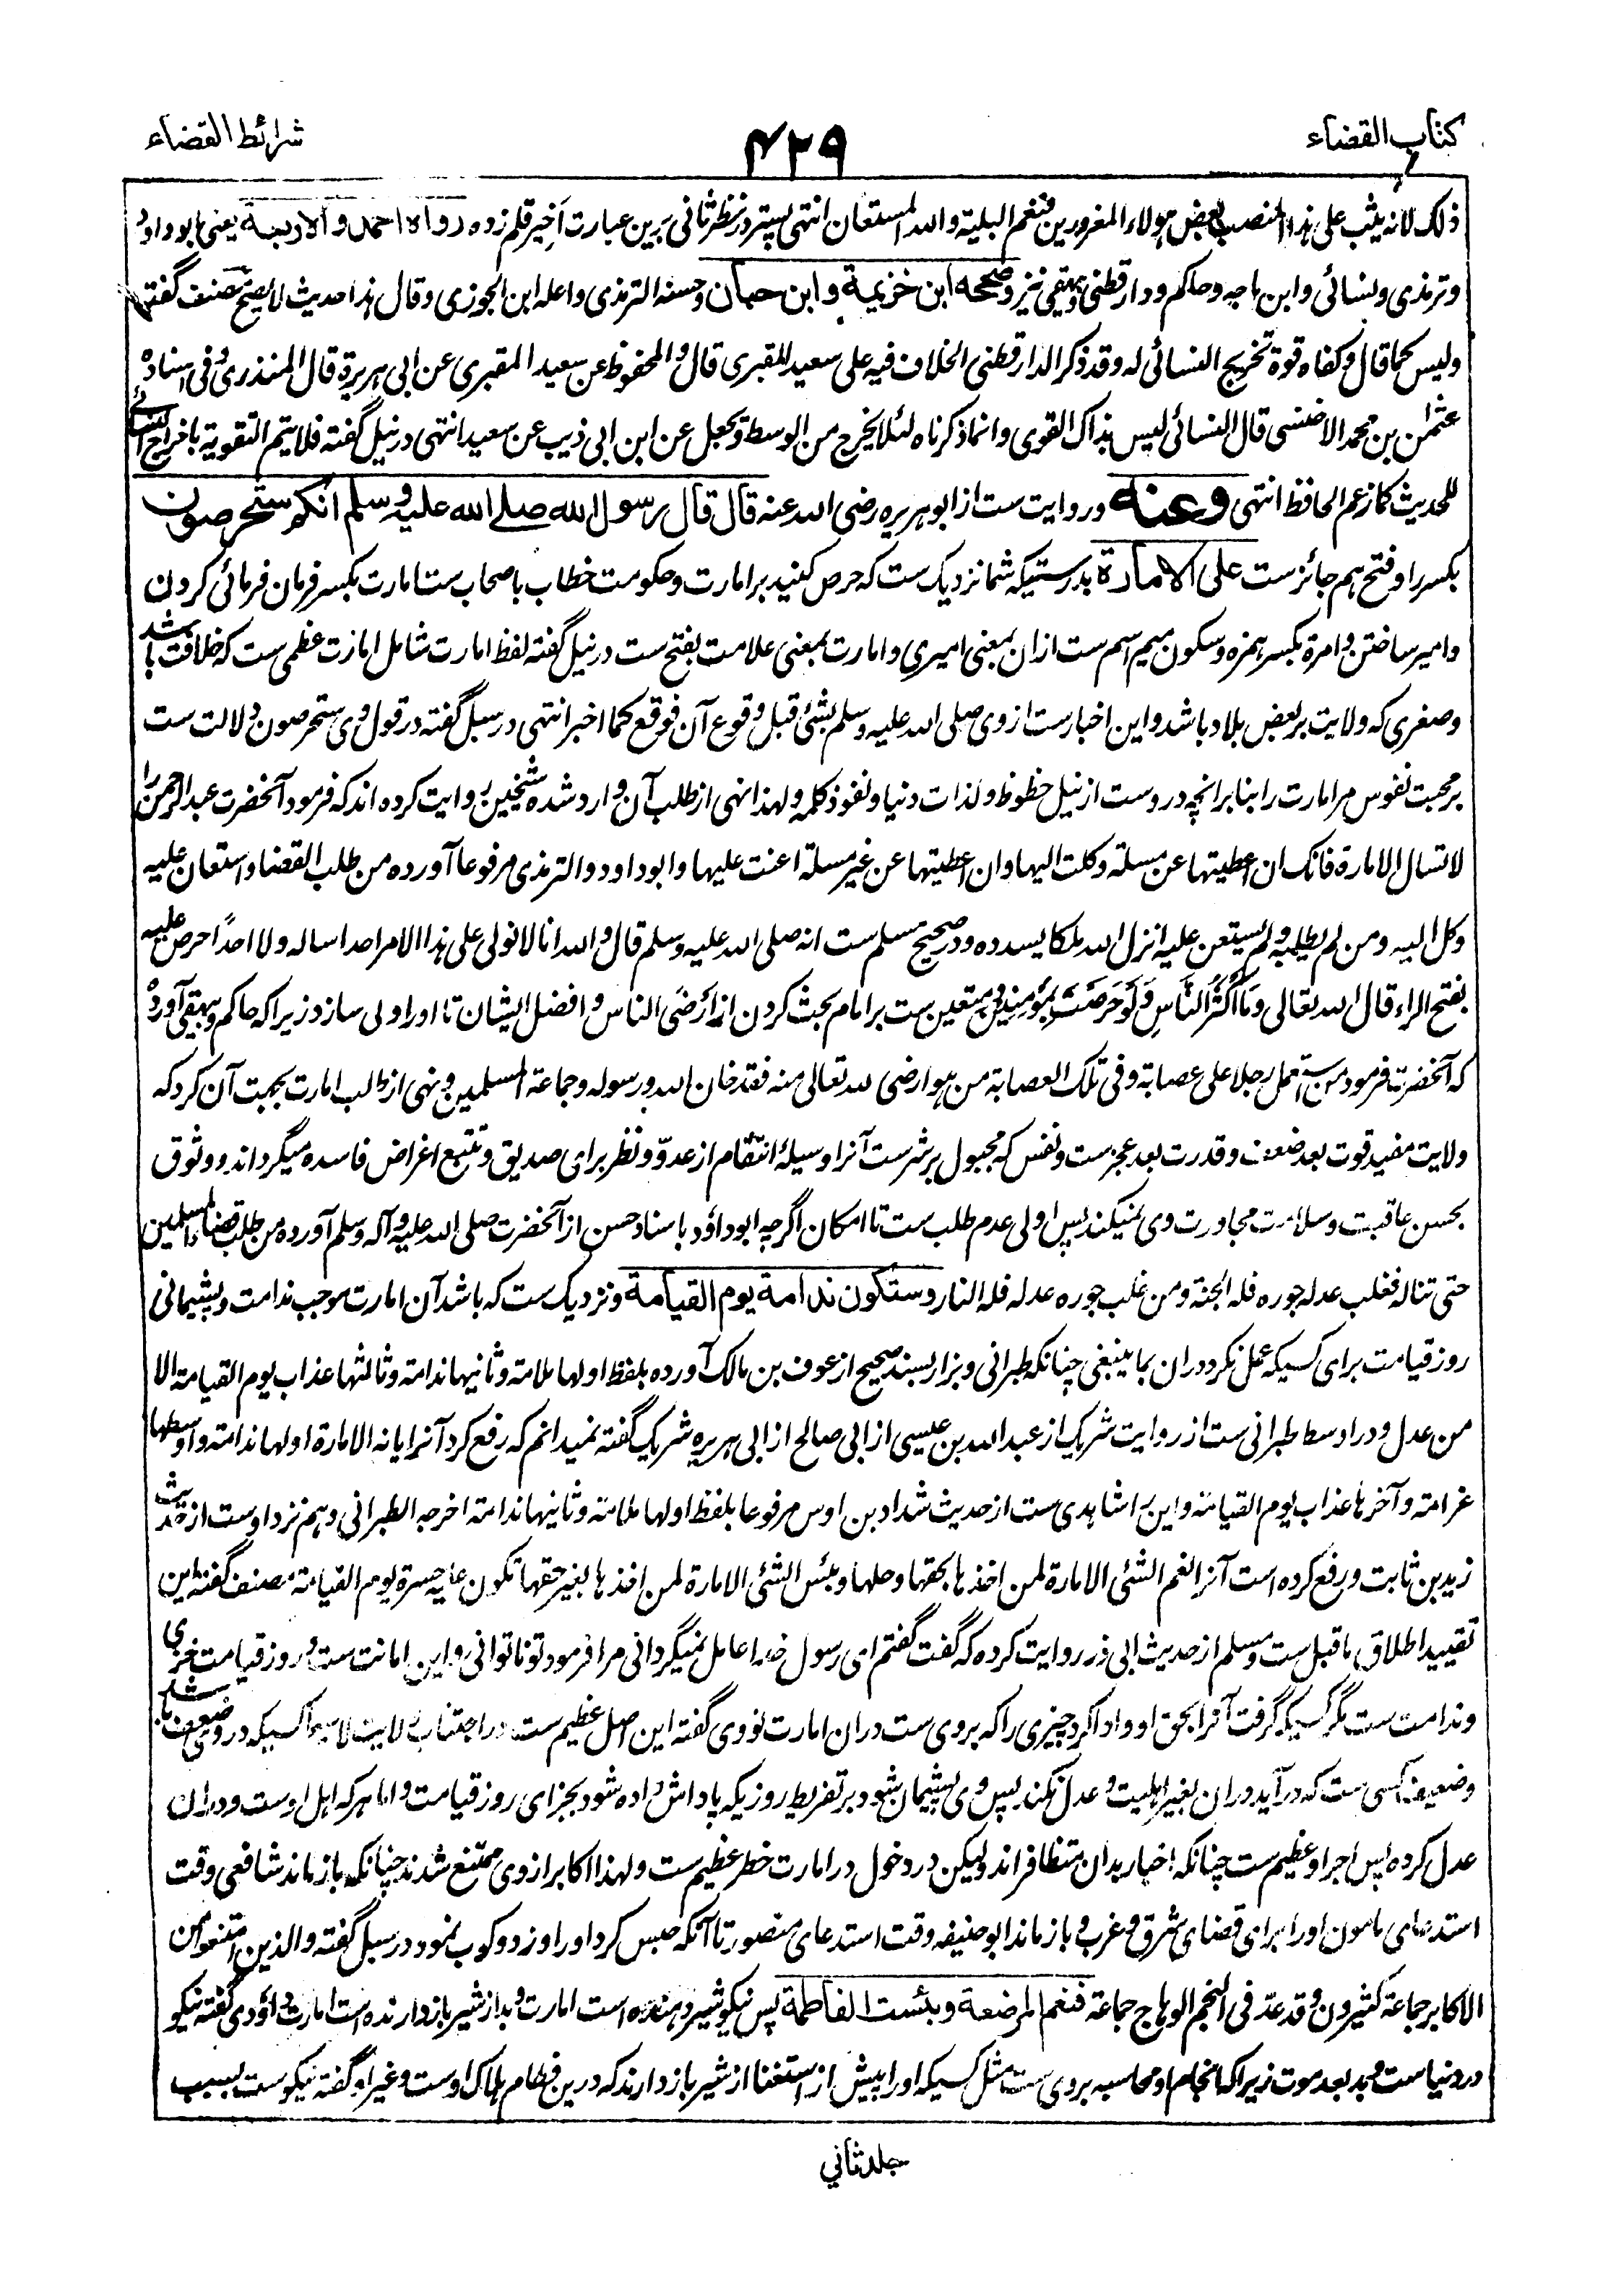 کتاب القضاء
۴۲۹
شرائط القضاء
ذلک لانه یثب علی هذا المنصب بعض هولاء المغرورین فنعم البلیة والله المستعان انتهی پستر در نظر ثانی برین عبارت اخیر قلم زده رواه احمد والاربعة یعنی ابو داود
وترمذی ونسائی وابن ماجه وحاکم ودارقطنی وبیهقی نیز وصححه ابن خزیمة وابن حبان وحسنه الترمذی واعله ابن الجوزی وقال هذا حدیث لا یصح مصنف گفته
ولیس کما قال وکفاه قوة تخریج النسائی له وقد ذکر الدارقطنی الخلاف فیه علی سعید المقبری قال والمحفوظ عن سعید المقبری عن ابی هریرة قال المنذری وفی اسناده
عثمٰن بن محمد الاخنسی قال النسائی لیس بذاک القوی وانما ذکرناه لئلا یخرج من الوسط ویجعل عن ابن ابی ذیب عن سعید انتهی در نیل گفته فلا یتم التقویة باخراج النسائی
للحدیث کما زعم الحافظ انتهی وعنه وروایت ست از ابو هریره رضی الله عنه قال قال رسول الله صلے الله علیه وسلم انکم ستحرصون
بکسر را وفتح هم جائز ست علی الامارة بدرستیکه شما نزدیک ست که حرص کنید بر امارت وحکومت خطاب باصحاب ست امارت بکسر فرمان فرمائی کردن
وامیر ساختن وامرة بکسر همزه وسکون میم اسم ست ازان بمعنی امیری وامارت بمعنی علامت بفتح ست در نیل گفته لفظ امارت شامل امارت عظمی ست که خلافت باشد
وصغری که ولایت بر بعض بلاد باشد واین اخبار ست از وی صلی الله علیه وسلم بشئ قبل وقوع آن فوقع کما اخبر انتهی در سبل گفته در قول وی ستحرصون دلالت ست
بر محبت نفوس مر امارت را بنا بر انچه در وست از نیل حظوظ ولذات دنیا ونفوذ کلمه ولهذا نهی از طلب آن وارد شده شیخین روایت کرده اند که فرمود آنحضرت عبد الرحمن را
لا تسال الامارة فانک ان اعطیتها عن مسلة وکلت الیها وان اعطیتها عن غیر مسلة اعنت علیها وابو داود والترمذی مرفوعا آورده من طلب القضا واستعان علیه
وکل الیه ومن لم یطلبه ولم یستعن علیه انزل الله ملکا یسدده ودر صحیح مسلم ست انه صلی الله علیه وسلم قال والله انا لا نولی علی هذا الامر احدا ساله ولا احدًا حرص علیه
بفتح الراء قال الله تعالی وَمَا أَكْثَرُ النَّاسِ وَلَوْ حَرَصْتَ بِمُؤْمِنِينَ ومتعین ست بر امام بحث کردن از ارضَی الناس وافضل ایشان تا اورا ولی سازد زیرا که حاکم وبیهقی آورده
که آنحضرت فرمود من استعمل رجلا علی عصابة وفی تلک العصابة من هو ارضی لله تعالی منه فقد خان الله ورسوله وجماعة المسلمین ونهی از طالب امارت بجهت آن کرد که
ولایت مفید قوت بعد ضعف وقدرت بعد عجز ست ونفس که مجبول بر شر ست آنرا وسیلهٔ انتقام از عدوّ ونظر برای صدیق وتتبع اغراض فاسده میگرداند ووثوق
بحسن عاقبت وسلامت مجاورت وی نمیکند پس اولی عدم طلب ست تا امکان اگرچه ابو داؤد باسناد حسن از آنحضرت صلی الله علیه وآله وسلم آورده من طلب قضاء المسلمین
حتی تناله فغلب عدله جوره فله الجنة ومن غلب جوره عدله فله النار وستکون ندامة یوم القیامة ونزدیک ست که باشد آن امارت موجب ندامت وپشیمانی
روز قیامت برای کسیکه عمل نکرد دران بما ینبغی چنانکه طبرانی وبزار بسند صحیح از عوف بن مالک آورده بلفظ اولها ملامة وثانیها ندامة وثالثها عذاب یوم القیامة الا
من عدل ودر اوسط طبرانی ست از روایت شریک از عبد الله بن عیسی از ابی صالح از ابی هریره شریک گفته نمیدانم که رفع کرد آنرا یا نه الامارة اولها ندامة واوسطها
غرامة وآخرها عذاب یوم القیامة واین را شاهدی ست از حدیث شداد بن اوس مرفوعا بلفظ اولها ملامة وثانیها ندامة اخرجه الطبرانی وهم نزد اوست از حدیث
زید بن ثابت ورفع کرده است آنرا نعم الشئی الامارة لمن اخذها بحقها وحلها وبئس الشئی الامارة لمن اخذها بغیر حقها تکون علیه حسرة یوم القیامة مصنف گفته این
تقیید اطلاق ما قبل ست ومسلم از حدیث ابی ذر روایت کرده که گفت گفتم ای رسول خدا عامل نمیگردانی مرا فرمود تو ناتوانی واین امانت ست وروز قیامت خزی
وندامت ست مگر کسیکه گرفت آنرا بحق او وادا کرد چیزی را که بروی ست دران امارت نووی گفته این اصل عظیم ست در اجتناب ولایت لا سیما کسیکه در وی ضعف باشد
وضعیف کسی ست که در آید دران بغیر اهلیت وعدل نکند پس وی پشیمان شود بر تفریط روزیکه پاداش داده شود بجزای روز قیامت واما هر که اهل اوست ودران
عدل کرده پس اجر او عظیم ست چنانکه اخبار بدان متظافر اند ولیکن در دخول در امارت خطر عظیم ست ولهذا اکابر ازوی ممتنع شدند چنانکه باز ماند شافعی وقت
استدعای مامون اورا برای قضای شرق وغرب وباز ماند ابو حنیفه وقت استدعای منصور تا آنکه حبس کرد اورا وزد وکوب نمود در سبل گفته والذین امتنعوا من
الاکابر جماعة کثیرون وقد عدّ فی النجم الوهاج جماعة فنعم المرضعة وبئست الفاطمة پس نیکو شیر دهنده است امارت وبد از شیر باز دارنده است امارت داؤدی گفته نیکو
در دنیاست وبد بعد موت زیرا که انجام او محاسبه بر وی ست مثل کسیکه اورا پیش از استغنا از شیر باز دارند که درین فطام هلاک اوست وغیر او گفته نیکوست بسبب
جلد ثانی